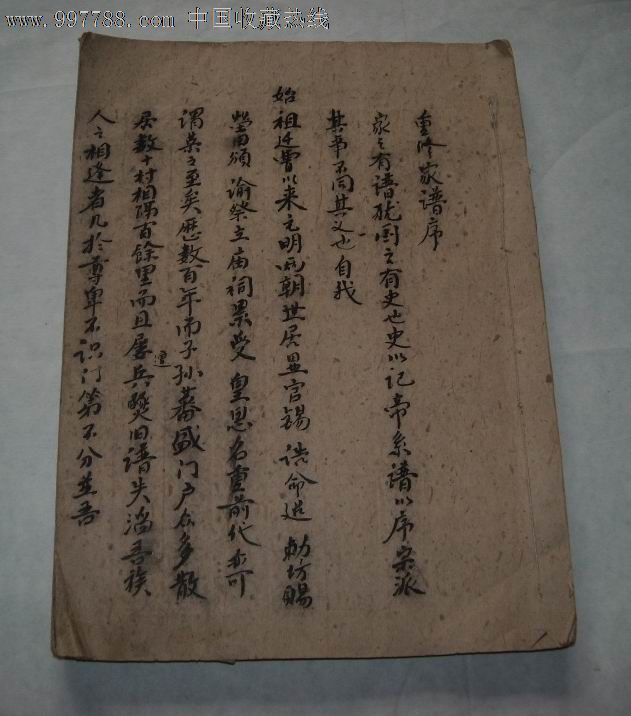 www.997788.com 中国收藏热线
重修家谱序
家之有谱犹国之有史也史以记帝系谱以序宗派
其事不同其义也自我
始祖迁曹以来元明两朝世居显官锡诰命造勅坊赐
茔田颁谕祭立庙祠累受皇恩名重前代亦可
谓荣之至矣歷数百年而子孙蕃盛门户众多散
居数十村相隔百餘里而且屡遭兵燹旧谱失㴞吾族
人之相逢者几於尊卑不识门第不分并吾